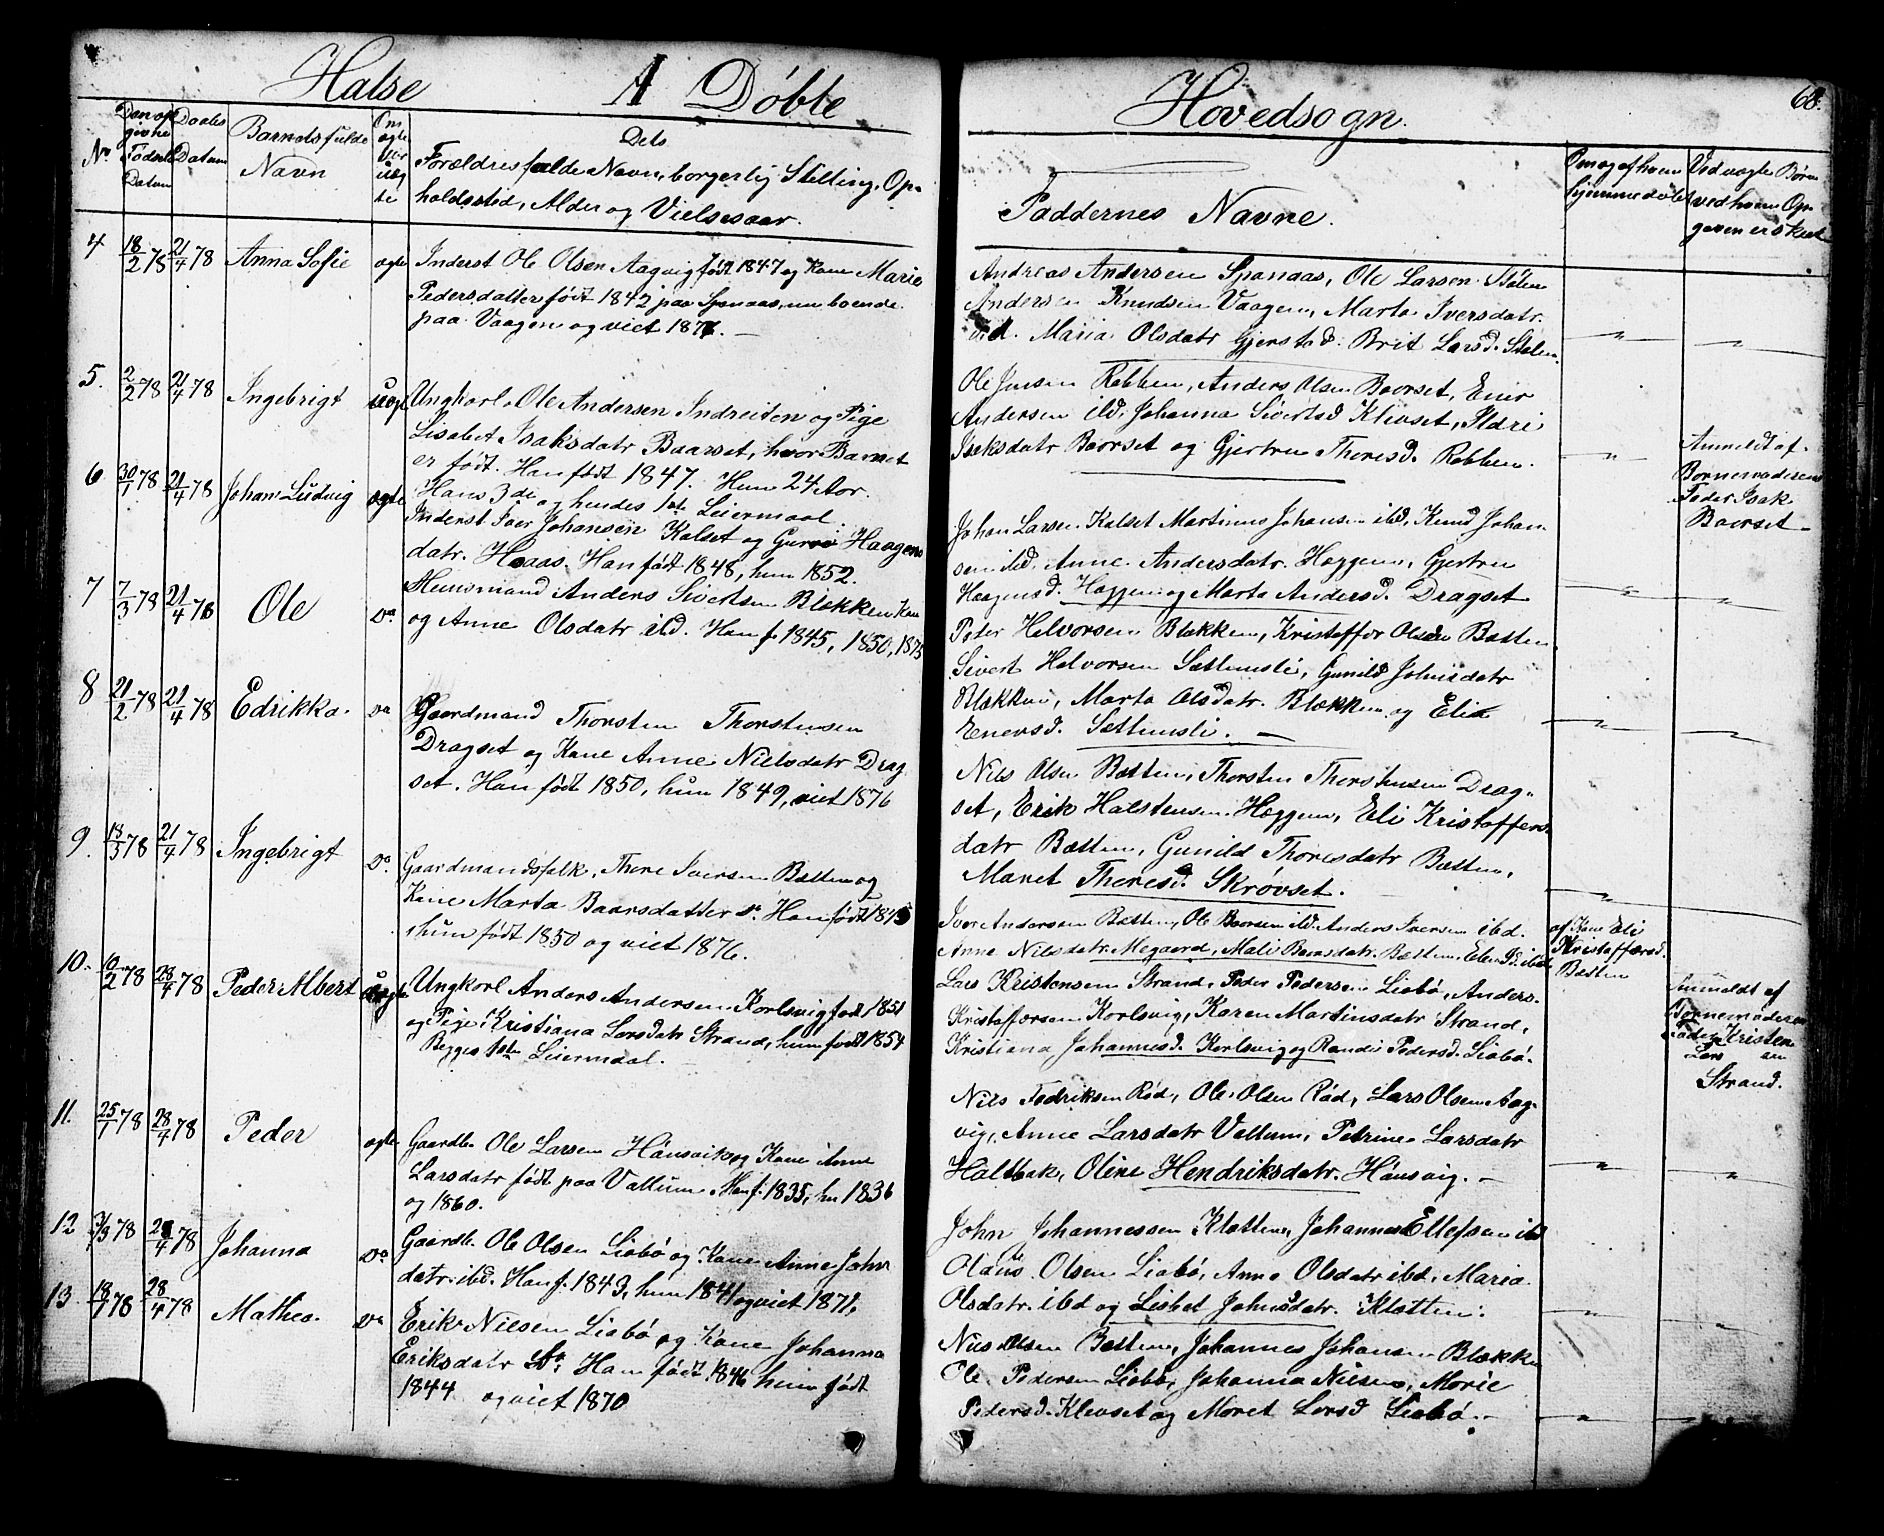 Halse A Döbte Hovedsogn. 68.
No. Den opgivne Födsels Datum
Daabs Datum
Barnets fulde Navn
Om ægte eller uægte
Dets
Forældres fulde Navn, borgerlig Stilling, Op-
holdssted, Alder og Vielsesaar.
Faddernes Navne.
Om og af hvem hjemmedöbt
Ved uægte Börn ved hvem Opgaven er skeet
4 18/2 78 21/4 78 Anna Sofie ægte
Inderst Ole Olsen Aagvig födt 1847 og Kane Marie
Pedersdatter födt 1842 paa Spanaas, nu boende
paa Vaagen og viet 1871. —
Andreas Andersen Spanaas, Ole Larsen Stölen
Andersen Knudsen Vaagen, Marta Iversdatr.
ibd. Maria Olsdatr Gjerstad. Brit Larsd. Stölen
5. 2/2 78 21/4 78 Ingebrigt uægte
Ungkarl Ole Andersen Indreiten og Pige
Lisabet Isaksdatr Baarset, hvor Barnet
er födt. Han födt 1847. Hun 24 Aar.
Hans 3de og hendes 1ste Leiermaal.
Ole Jensen Rabben, Anders Olsen Boorset, Ener
Andersen ibd, Johanna Sivertsd Klevset, Ildri
Iseksdatr Boorset og Gjertru Theresd. Robben.
Anmeldt af
Bornemoderens
Fader Isak
Boorset
6 30/1 78 21/4 78 Johan Ludvig ægte
Inderst Iver Johansen Kalset og Guroe Haagens
datr. Hoaas. Han födt 1848, hun 1852.
Johan Larsen Kalset Martinus Johansen ibd, Knud Johan
sen ibd. Anne Andersdatr. Hoggem, Gjertru
Haagensd. Hoggem og Marta Andersd. Dragset
7 7/3 78 21/4 78 Ole Do
Husmand Anders Sivertsen Blekken Kane
og Anne Olsdatr ibd. Han f. 1845, 1850, 1875
Peter Halvorsen Blekken, Kristoffer Olsen Botten
Sivert Halvorsen Settemsli, Gunild Johnsdatr
Blekken, Marta Olsdatr. Blekken og Elie
Enersd. Settemsli. —
8 21/2 78 21/4 78 Edrikka. Do
Gaardmand Thorsten Thorstensen
Dragset og Kane Anne Nielsdatr Drag
set. Han födt 1850, hun 1849, viet 1876
Nils Olsen Botten, Thorsten Thorstensen Drag-
set, Erik Halstensen Hoggem, Eli Kristoffers
datr Botten, Gunild Thoresdatr Botten,
Maret Theresd. Skrövset.
9. 18/3 78 21/4 78 Ingebrigt Do.
Gaardmandsfolk, Thore Iversen Botten og
Kane Marta Baarsdatter Do. Han födt 1845
hun födt 1850 og viet 1876.
Iver Andersen Botten, Ole Boorsen ibd. Anders Iversen ibd.
Anne Nilsdatr. Megaard, Mali Boorsdatr. Botten,
af Kane Eli
Kristoffersd.
Botten
10. 10/2 78 28/4 78 Peder Albert uægte
Ungkarl Anders Andersen Korlsvig födt 1851
og Pige Kristiana Larsdatr Strand, hun födt 1854
Begges 1ste Leiermaal.
Lars Kristensen Strand, Peder Pedersen Liabö, Anders
Kristoffersen Korlsvig, Karen Martinsdatr Strand,
Kristiana Johannesd. Korlsvig og Randi Pedersd. Liabö.
Anmeldt af
Bornemoderens
Fader Kristen
Lars sen
Strand.
11. 25/1 78 28/4 78 Peder ægte
Gaardb. Ole Larsen Hansvik og Kane Anne
Larsdatr födt paa Vallum. Han f. 1835, hu 1836
og 1860.
Nils Fedriksen Röd, Ole Olsen Röd, Lars Olsen Aag-
vig, Anne Larsdatr Vallum, Petrine Larsdatr
Haltbak, Oline Hendriksdatr. Hansvig. —
12 3/3 78 28/4 78 Johanna Do
Gaardb. Ole Olsen Liabö og Kane Anne John
datr. ibd. Han f. 1843, hun 1841 og viet 1871.
John Johannessen Kletten, Johannes Ellefsen ibd
Olaus Olsen Liabö, Anne Olsdatr ibd, Maria
Olsdatr. ibd og Lisbet Johnsdatr. Kletten.
13. 18/1 78 28/4 78 Mathea. Do
Erik Nilsen Liabö og Kane Johanna
Eriksdatr Do. Han födt. 1846 hun födt
1844 og viet 1870
Nils Olsen Botten, Johannes Johansen Blekken
Ole Pedersen Liabö, Johanna Nilsen, Morie
Pedersd. Klevset og Moret Larsd Liabö. —